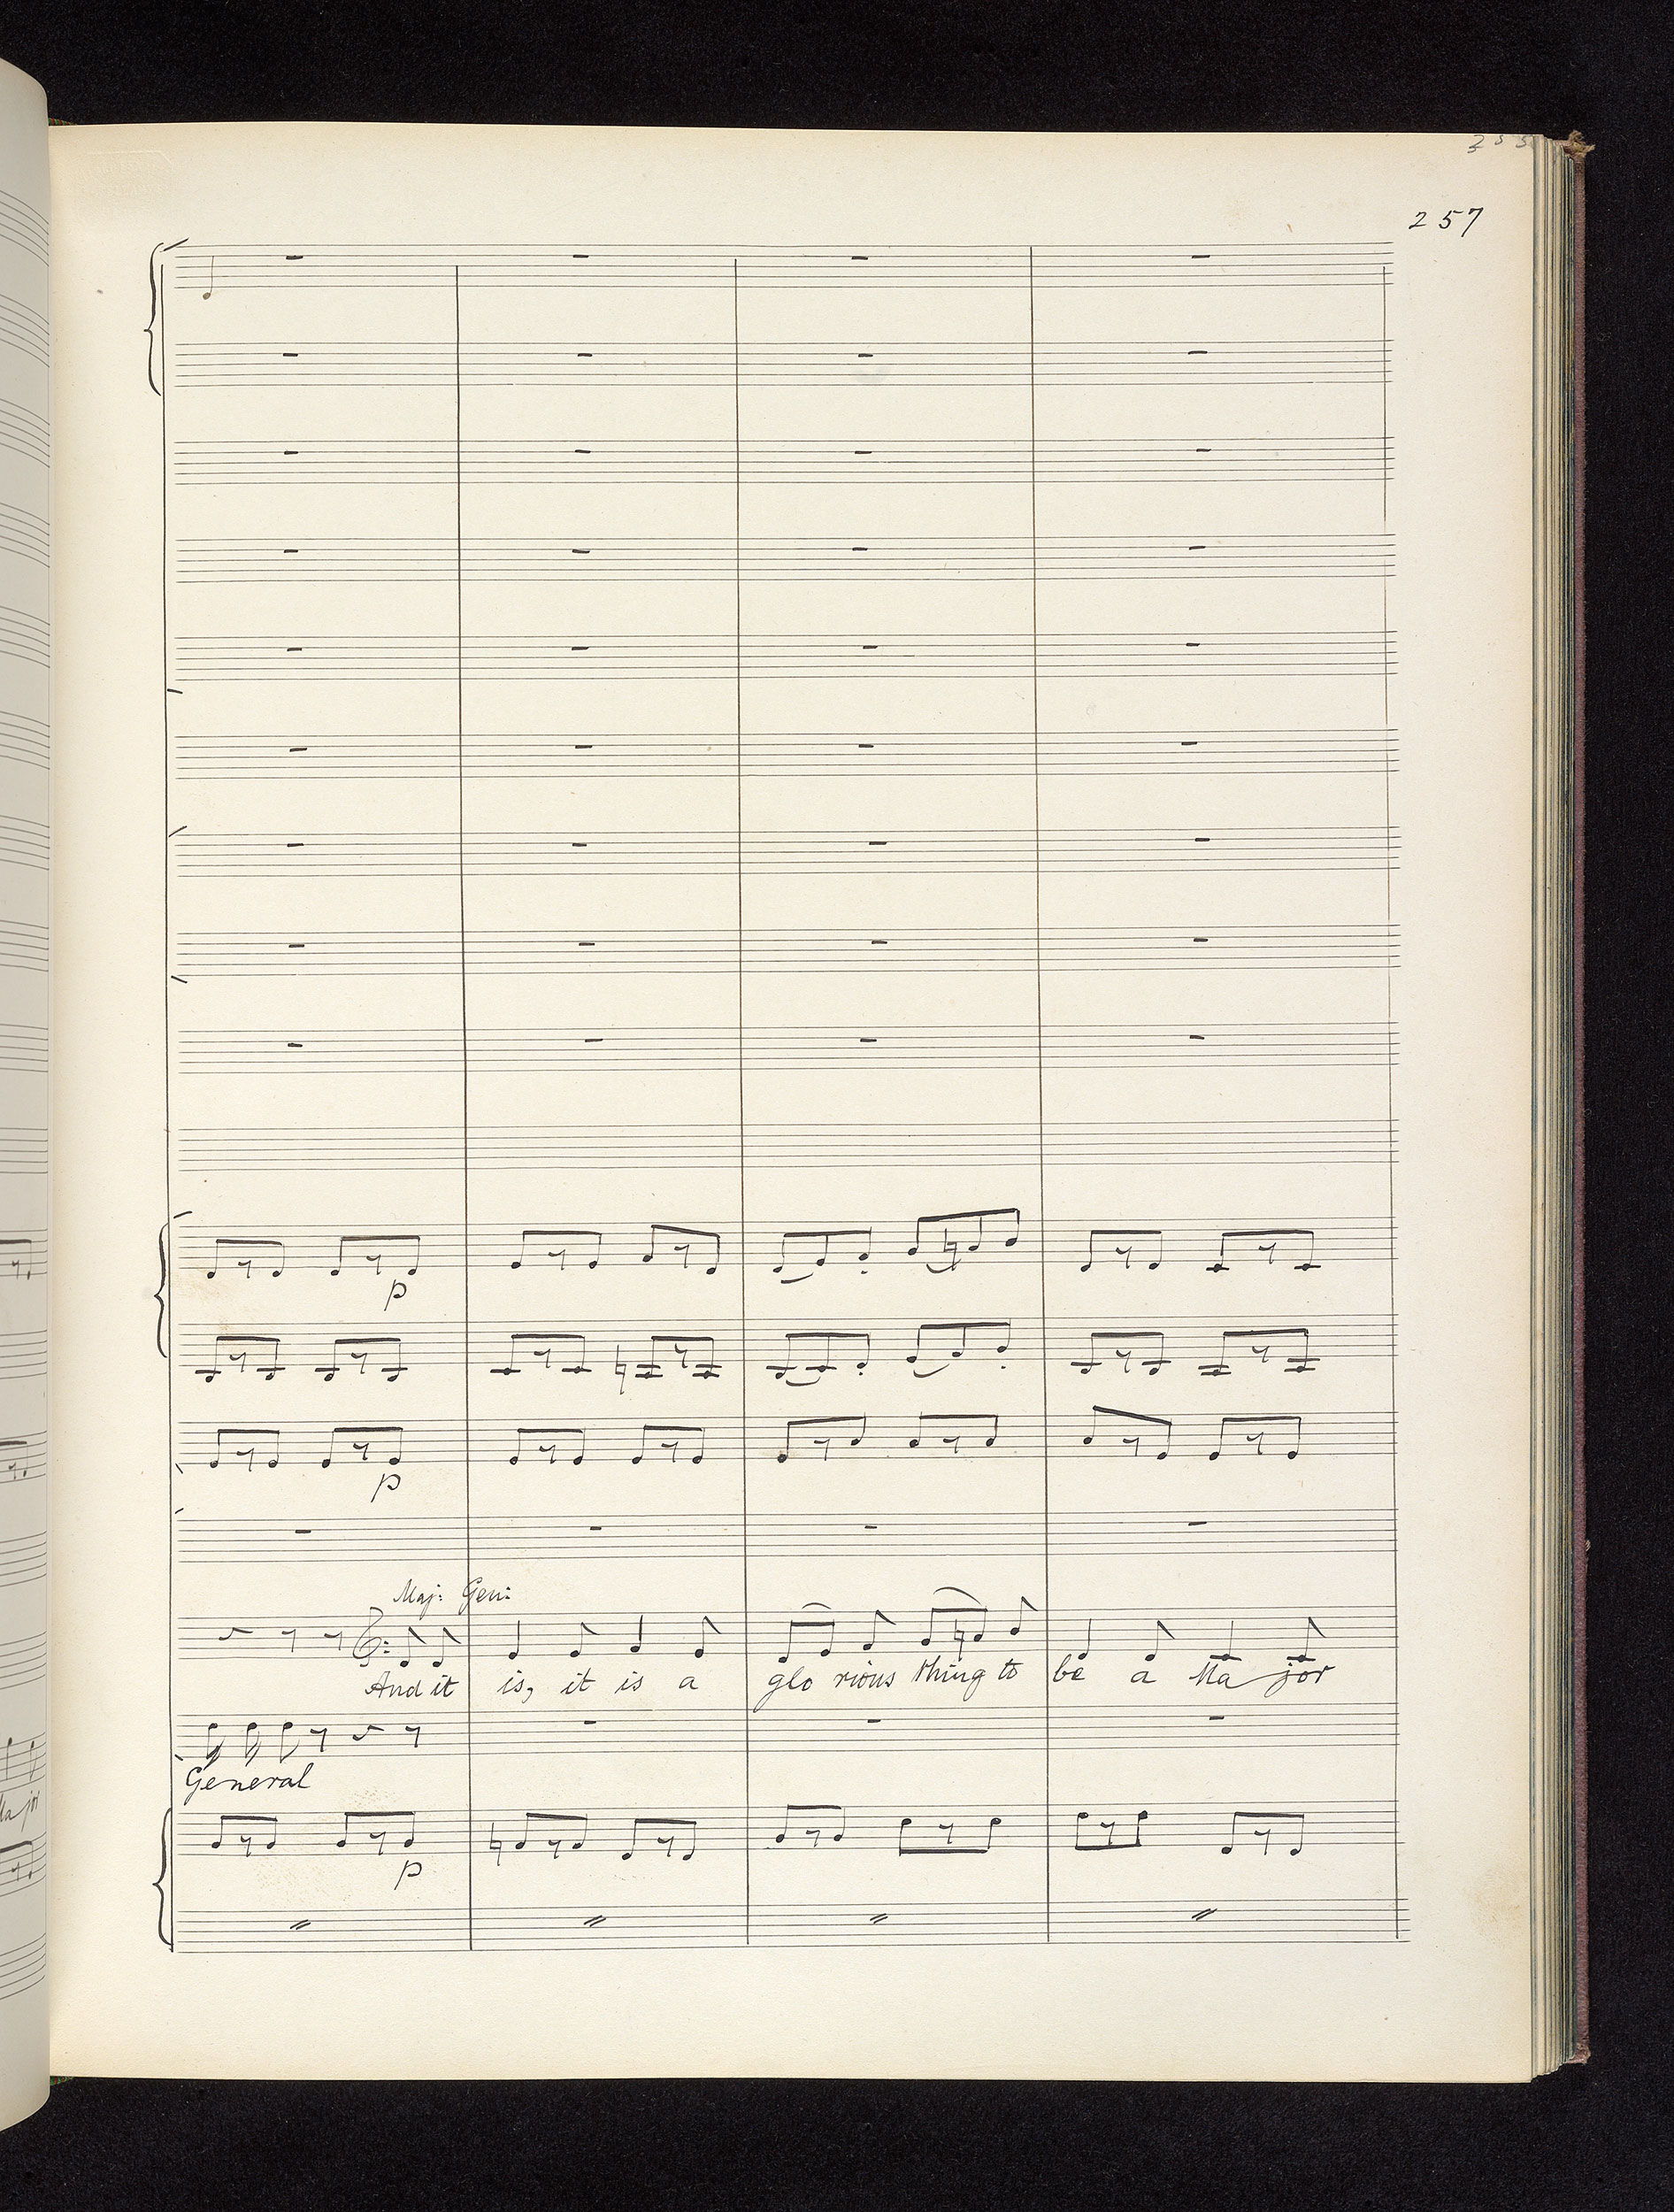 255
257
p
p
Maj: Gen:
And it is, it is a glo rious thing to be a Ma jor
General
p